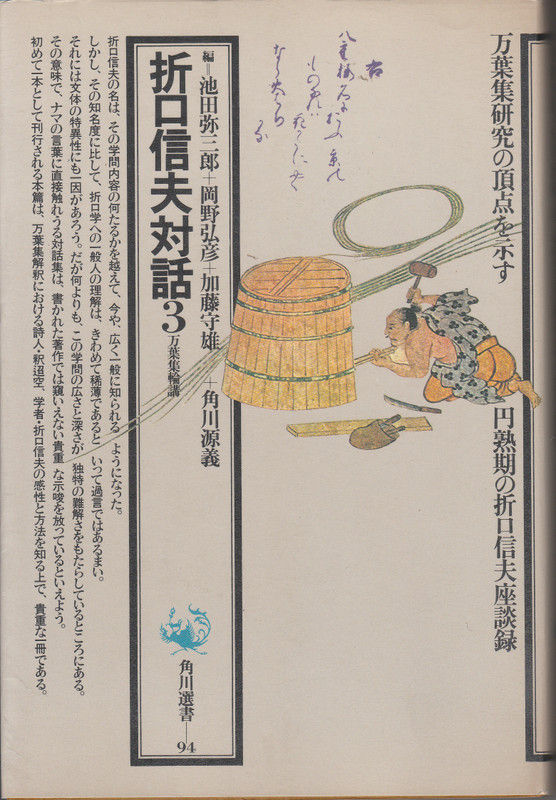 万葉集研究の頂点を示す
円熟期の折口信夫座談録
編＝池田弥三郎+岡野弘彦+加藤守雄+角川源義
折口信夫対話3
万葉集輪講
角川選書—94
折口信夫の名は、その学問内容の何たるかを越えて、今や、広く一般に知られるようになった。
しかし、その知名度に比して、折口学への一般人の理解は、きわめて稀薄であるといって過言ではあるまい。
それには文体の特異性にも一因があろう。だが何よりも、この学問の広さと深さが独特の難解さをもたらしているところにある。
その意味で、ナマの言葉に直接触れうる対話集は、書かれた著作では窺いえない貴重な示唆を放っているといえよう。
初めて一本として刊行される本篇は、万葉集解釈における詩人・釈迢空、学者・折口信夫の感性と方法を知る上で、貴重な一冊である。